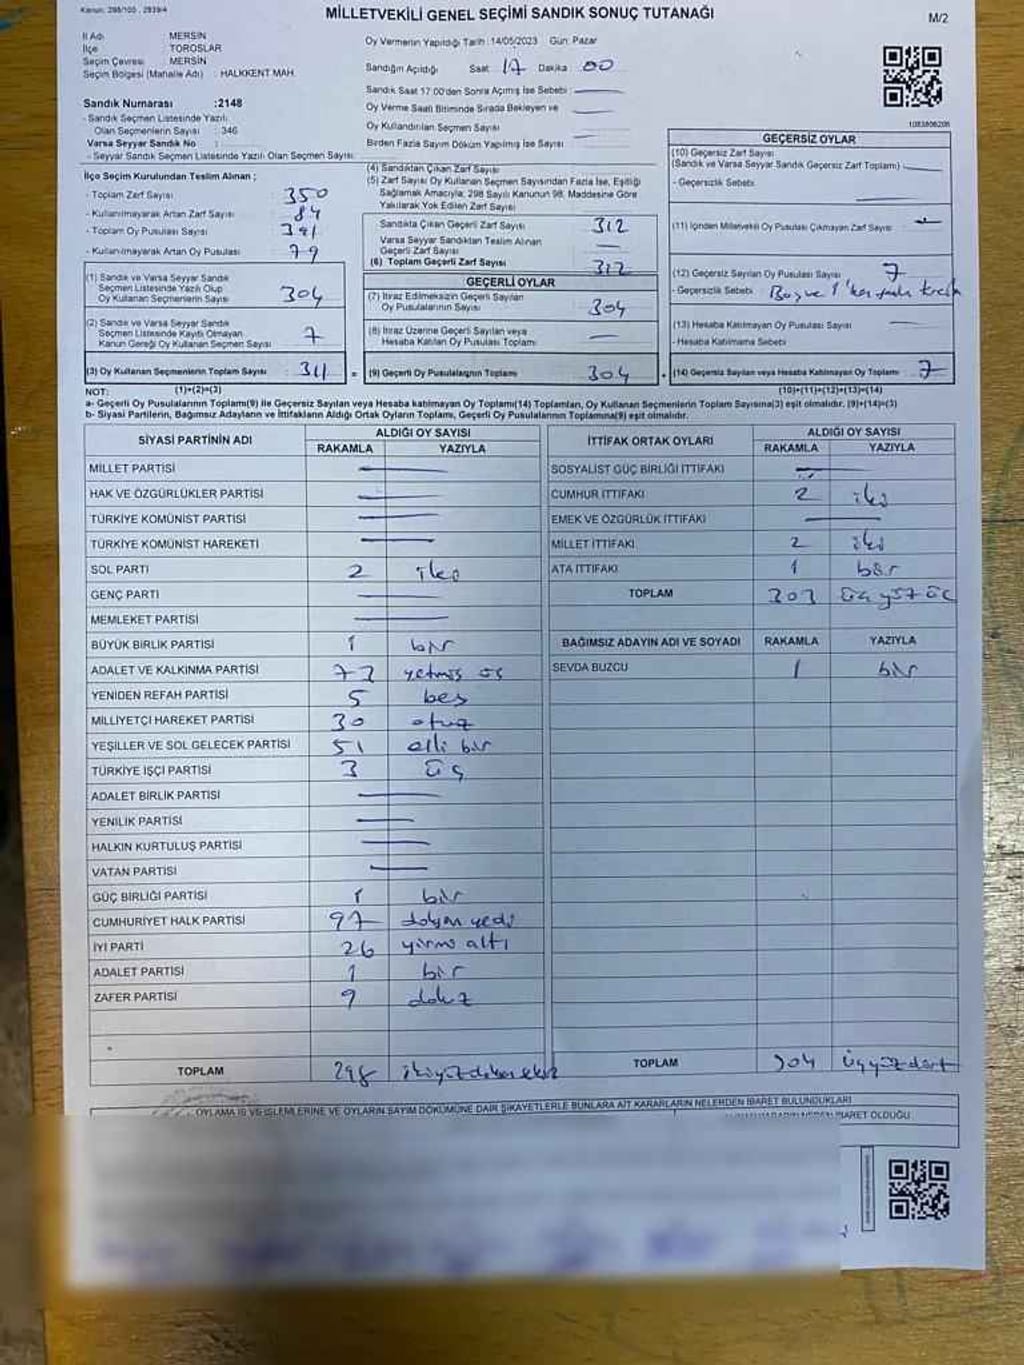 Kanun: 298/105 , 2839/4
MİLLETVEKİLİ GENEL SEÇİMİ SANDIK SONUÇ TUTANAĞI
M/2
İl Adı MERSİN
İlçe TOROSLAR
Seçim Çevresi MERSİN
Seçim Bölgesi (Mahalle Adı) : HALKKENT MAH.
Sandık Numarası :2148
- Sandık Seçmen Listesinde Yazılı
Olan Seçmenlerin Sayısı : 346
Varsa Seyyar Sandık No :
- Seyyar Sandık Seçmen Listesinde Yazılı Olan Seçmen Sayısı:
Oy Vermenin Yapıldığı Tarih :14/05/2023 Gün: Pazar
Sandığın Açıldığı Saat 17 Dakika 00
Sandık Saat 17:00'den Sonra Açılmış İse Sebebi : —
Oy Verme Saati Bitiminde Sırada Bekleyen ve —
Oy Kullandırılan Seçmen Sayısı —
Birden Fazla Sayım Döküm Yapılmış İse Sayısı —
1083806206
İlçe Seçim Kurulundan Teslim Alınan ;
- Toplam Zarf Sayısı 350
- Kullanılmayarak Artan Zarf Sayısı : 84
- Toplam Oy Pusulası Sayısı 391
- Kullanılmayarak Artan Oy Pusulası : 79
(1) Sandık ve Varsa Seyyar Sandık
Seçmen Listesinde Yazılı Olup
Oy Kullanan Seçmenlerin Sayısı 304
(2) Sandık ve Varsa Seyyar Sandık
Seçmen Listesinde Kayıtlı Olmayan
Kanun Gereği Oy Kullanan Seçmen Sayısı 7
(3) Oy Kullanan Seçmenlerin Toplam Sayısı 311 =
(1)+(2)=(3)
(4) Sandıktan Çıkan Zarf Sayısı
(5) Zarf Sayısı Oy Kullanan Seçmen Sayısından Fazla İse, Eşitliği
Sağlamak Amacıyla; 298 Sayılı Kanunun 98. Maddesine Göre
Yakılarak Yok Edilen Zarf Sayısı
Sandıkta Çıkan Geçerli Zarf Sayısı 312
Varsa Seyyar Sandıktan Teslim Alınan
Geçerli Zarf Sayısı —
(6) Toplam Geçerli Zarf Sayısı 312
GEÇERLİ OYLAR
(7) İtiraz Edilmeksizin Geçerli Sayılan
Oy Pusulalarının Sayısı 304
(8) İtiraz Üzerine Geçerli Sayılan veya
Hesaba Katılan Oy Pusulası Toplamı —
(9) Geçerli Oy Pusulalarının Toplamı 304 +
GEÇERSİZ OYLAR
(10) Geçersiz Zarf Sayısı
(Sandık ve Varsa Seyyar Sandık Geçersiz Zarf Toplamı) —
- Geçersizlik Sebebi —
(11) İçinden Milletvekili Oy Pusulası Çıkmayan Zarf Sayısı —
(12) Geçersiz Sayılan Oy Pusulası Sayısı 7
- Geçersizlik Sebebi
(13) Hesaba Katılmayan Oy Pusulası Sayısı —
- Hesaba Katılmama Sebebi
(14) Geçersiz Sayılan veya Hesaba Katılmayan Oy Toplamı 7
(10)+(11)+(12)+(13)=(14)
NOT:
a- Geçerli Oy Pusulalarının Toplamı(9) ile Geçersiz Sayılan veya Hesaba katılmayan Oy Toplamı(14) Toplamları, Oy Kullanan Seçmenlerin Toplam Sayısına(3) eşit olmalıdır. (9)+(14)=(3)
b- Siyasi Partilerin, Bağımsız Adayların ve İttifakların Aldığı Ortak Oyların Toplamı, Geçerli Oy Pusulalarının Toplamına(9) eşit olmalıdır.
SİYASİ PARTİNİN ADI ALDIĞI OY SAYISI
RAKAMLA YAZIYLA
MİLLET PARTİSİ —
HAK VE ÖZGÜRLÜKLER PARTİSİ —
TÜRKİYE KOMÜNİST PARTİSİ —
TÜRKİYE KOMÜNİST HAREKETİ —
SOL PARTİ 2 iki
GENÇ PARTİ —
MEMLEKET PARTİSİ —
BÜYÜK BİRLİK PARTİSİ 1 bir
ADALET VE KALKINMA PARTİSİ 73 yetmiş üç
YENİDEN REFAH PARTİSİ 5 beş
MİLLİYETÇİ HAREKET PARTİSİ 30 otuz
YEŞİLLER VE SOL GELECEK PARTİSİ 51 elli bir
TÜRKİYE İŞÇİ PARTİSİ 3 üç
ADALET BİRLİK PARTİSİ —
YENİLİK PARTİSİ —
HALKIN KURTULUŞ PARTİSİ —
VATAN PARTİSİ —
GÜÇ BİRLİĞİ PARTİSİ 1 bir
CUMHURİYET HALK PARTİSİ 97 doksan yedi
İYİ PARTİ 26 yirmi altı
ADALET PARTİSİ 1 bir
ZAFER PARTİSİ 9 dokuz
TOPLAM 298
İTTİFAK ORTAK OYLARI ALDIĞI OY SAYISI
RAKAMLA YAZIYLA
SOSYALİST GÜÇ BİRLİĞİ İTTİFAKI —
CUMHUR İTTİFAKI 2 iki
EMEK VE ÖZGÜRLÜK İTTİFAKI —
MİLLET İTTİFAKI 2 iki
ATA İTTİFAKI 1 bir
TOPLAM 303 üç yüz üç
BAĞIMSIZ ADAYIN ADI VE SOYADI RAKAMLA YAZIYLA
SEVDA BUZCU 1 bir
TOPLAM 304 üç yüz dört
OYLAMA İŞ VE İŞLEMLERİNE VE OYLARIN SAYIM DÖKÜMÜNE DAİR ŞİKAYETLERLE BUNLARA AİT KARARLARIN NELERDEN İBARET BULUNDUKLARI